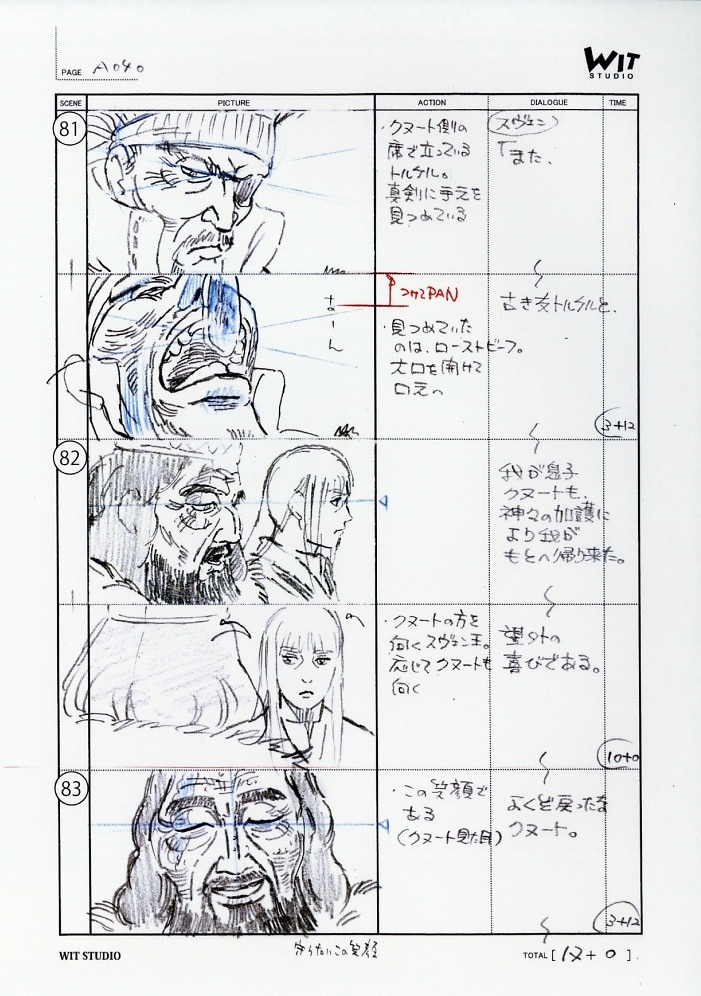 WIT
STUDIO
PAGE A040
SCENE PICTURE ACTION DIALOGUE TIME
81
・クヌート側の
席で立っている
トルケル。
真剣に手元を
見つめている
スヴェン
「また、
つけPAN
あーん
・見つめていた
のは、ローストビーフ。
大口を開けて
口元へ
古き友トルケルと、
3+12
82
我が息子
クヌートも、
神々の加護に
より我が
もとへ帰り来た。
・クヌートの方を
向くスヴェン王。
応じてクヌートも
向く
望外の
喜びである。
10+0
83
・この笑顔で
ある
(クヌート見た目)
よくぞ戻ったな
クヌート。
3+12
WIT STUDIO
守りたいこの笑顔
TOTAL [ 17+0 ]